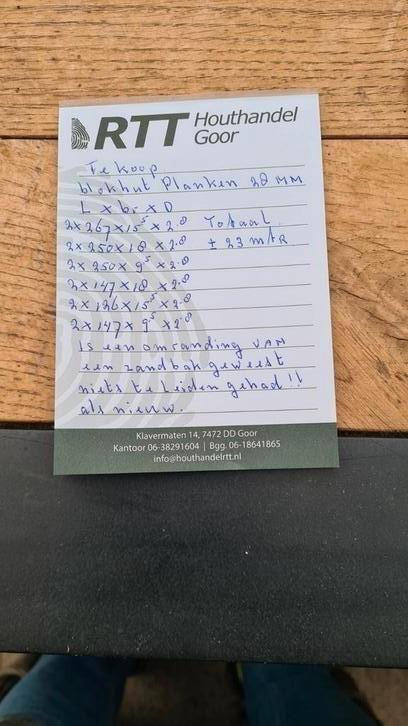 RTT Houthandel
Goor
Te koop
blokhut Planken 28 MM
L x br x D
2x267x15⁵x2.8 Totaal
2x250x18x2.8 ± 23 mtR
2x250x9⁵x2.8
2x147x18x2.8
2x126x15⁵x2.8
2x147x9⁵x2.8
is een omranding VAN
een zandbak geweest
niets te Leiden gehad !!
als nieuw.
Klavermaten 14, 7472 DD Goor
Kantoor 06-38291604 | Bgg. 06-18641865
info@houthandelrtt.nl